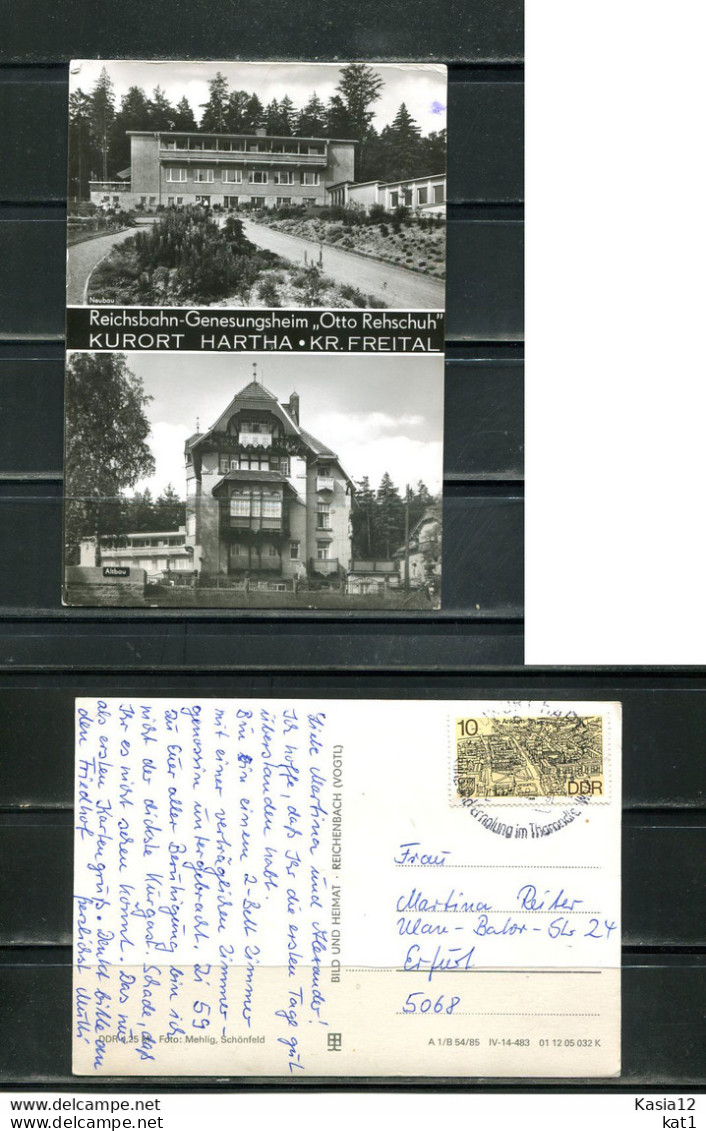 Neubau
Reichsbahn-Genesungsheim „Otto Rehschuh"
KURORT HARTHA • KR. FREITAL
Altbau
Liebe Martina und Alexander!
Ich hoffe, daß Ihr die ersten Tage gut
überstanden habt.
Bin in einem 2-Bett Zimmer
mit einer verträglichen Zimmer-
genossin untergebracht. Zi 59
Zu Eur aller Beruhigung bin ich
nicht der dickste Kurgast. Schade, daß
Ihr es nicht sehen könnt. Das nur
als ersten Kartengruß. Denkt bitte an
den Friedhof
herzlichst Mutti
BILD UND HEIMAT · REICHENBACH (VOGTL)
10
DDR
Erholung im Tharandter
Frau
Martina Reiter
Ulan-Bator-Str 24
Erfurt
5068
Foto: Mehlig, Schönfeld
A 1/B 54/85 IV-14-483 01 12 05 032 K
Copyright © 2024 Delcampe International srl
Kasia12
kat1